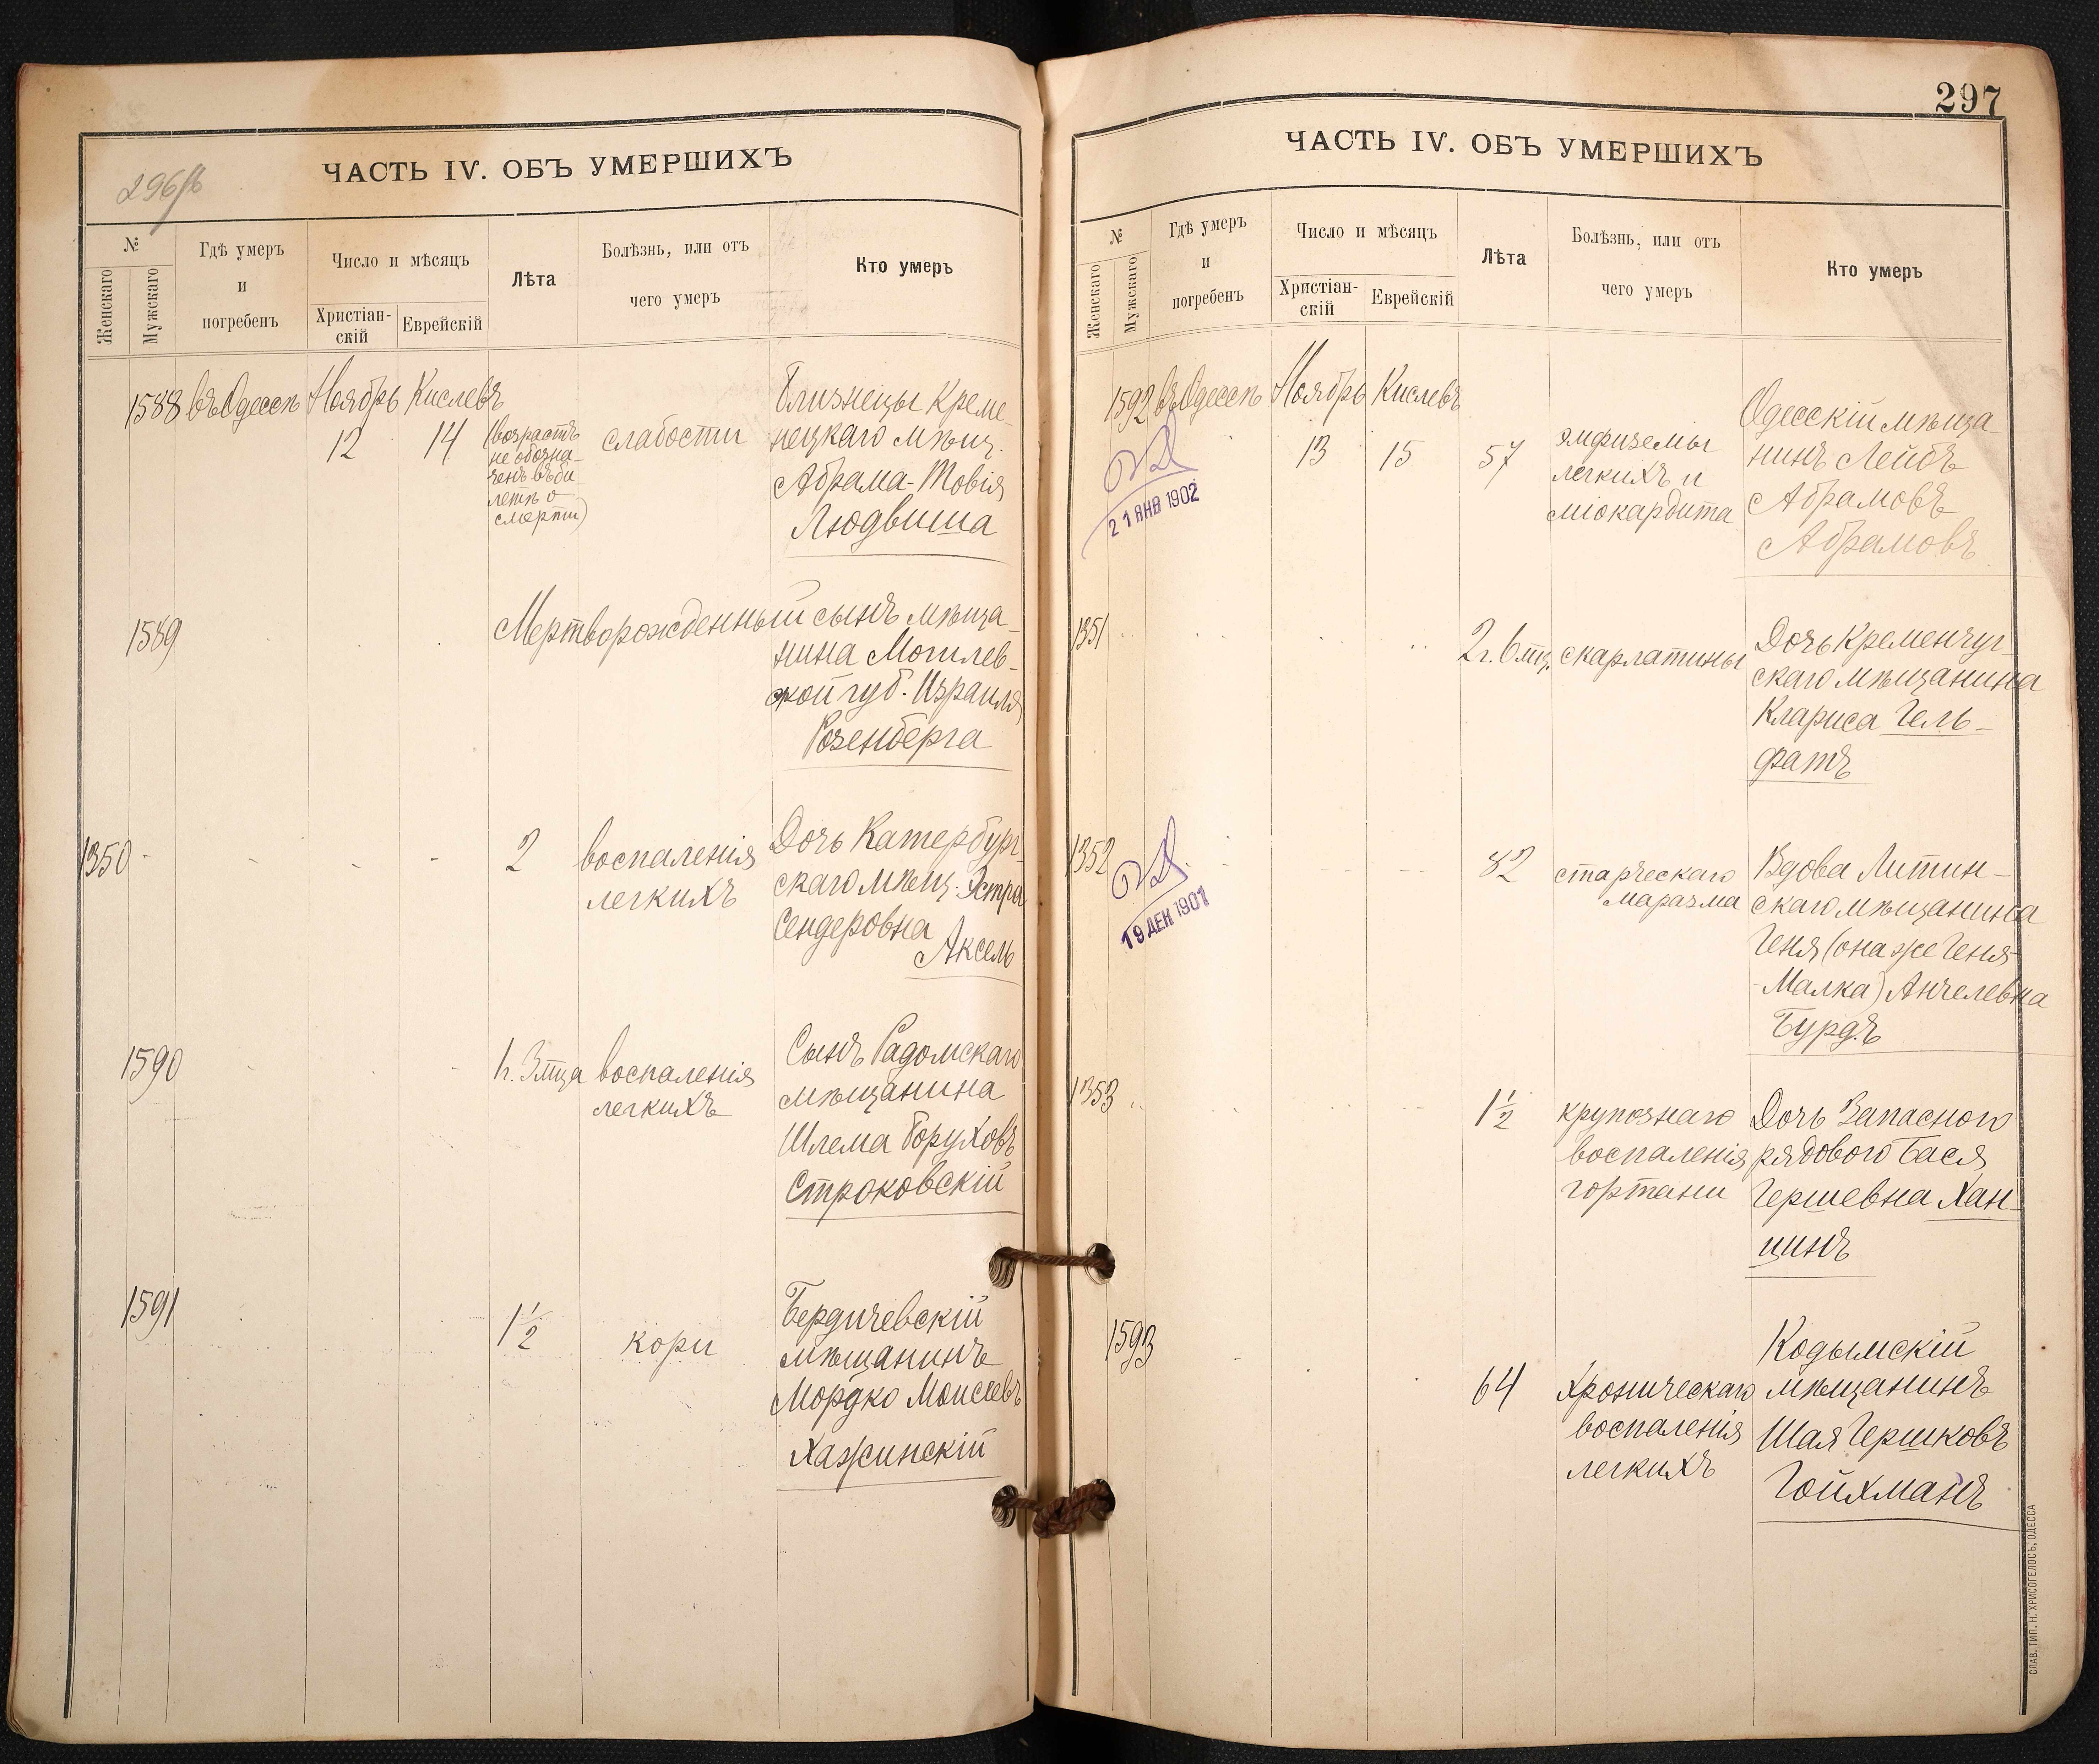 296
ЧАСТЬ IV. ОБЪ УМЕРШИХЪ
№
Женскаго
Мужскаго
Гдѣ умеръ
и
погребенъ
Число и мѣсяцъ
Христіан-
скій
Еврейскій
Лѣта
Болѣзнь, или отъ
чего умеръ
Кто умеръ
1588
въ Одессѣ
Ноябрь
12
Кислевъ
14
(возрастъ
не обозна-
ченъ въ би-
летѣ о
смерти)
слабости
Близнецы Креме-
нецкаго мѣщ.
Абрама-Товія
Людвиша
1589
Мертворожденный сынъ мѣща-
нина Могилев-
ской губ. Израиля
Розенберга
1350
2
воспаленія
легкихъ
Дочь Катербург-
скаго мѣщ. Эстра
Сендеровна
Аксель
1590
1г. 3 мца
воспаленія
легкихъ
Сынъ Радомскаго
мѣщанина
Шлема Боруховъ
Строковскій
1591
1½
кори
Бердичевскій
мѣщанинъ
Мордко Моисеевъ
Хажинскій
297
ЧАСТЬ IV. ОБЪ УМЕРШИХЪ
№
Женскаго
Мужскаго
Гдѣ умеръ
и
погребенъ
Число и мѣсяцъ
Христіан-
скій
Еврейскій
Лѣта
Болѣзнь, или отъ
чего умеръ
Кто умеръ
1592
въ Одессѣ
Ноябрь
13
Кислевъ
15
57
эмфиземы
легкихъ и
міокардита
Одесскій мѣща-
нинъ Лейбъ
Абрамовъ
Абрамовъ
21 ЯНВ 1902
1351
2г. 6 мц.
скарлатины
Дочь Кременчуг-
скаго мѣщанина
Клариса Гель-
фатъ
1352
19 ДЕК 1901
82
старческаго
маразма
Вдова Литин-
скаго мѣщанина
Геня (она же Геня-
Малка) Анчелевна
Бурдъ
1353
1½
крупознаго
воспаленія
гортани
Дочь Запасного
рядового Бася
Гершевна Хан-
цинъ
1593
64
хроническаго
воспаленія
легкихъ
Кодымскій
мѣщанинъ
Шая Гершковъ
Гойхманъ
СЛАВ. ТИП. Н. ХРИСОГЕЛОСЪ, ОДЕССА